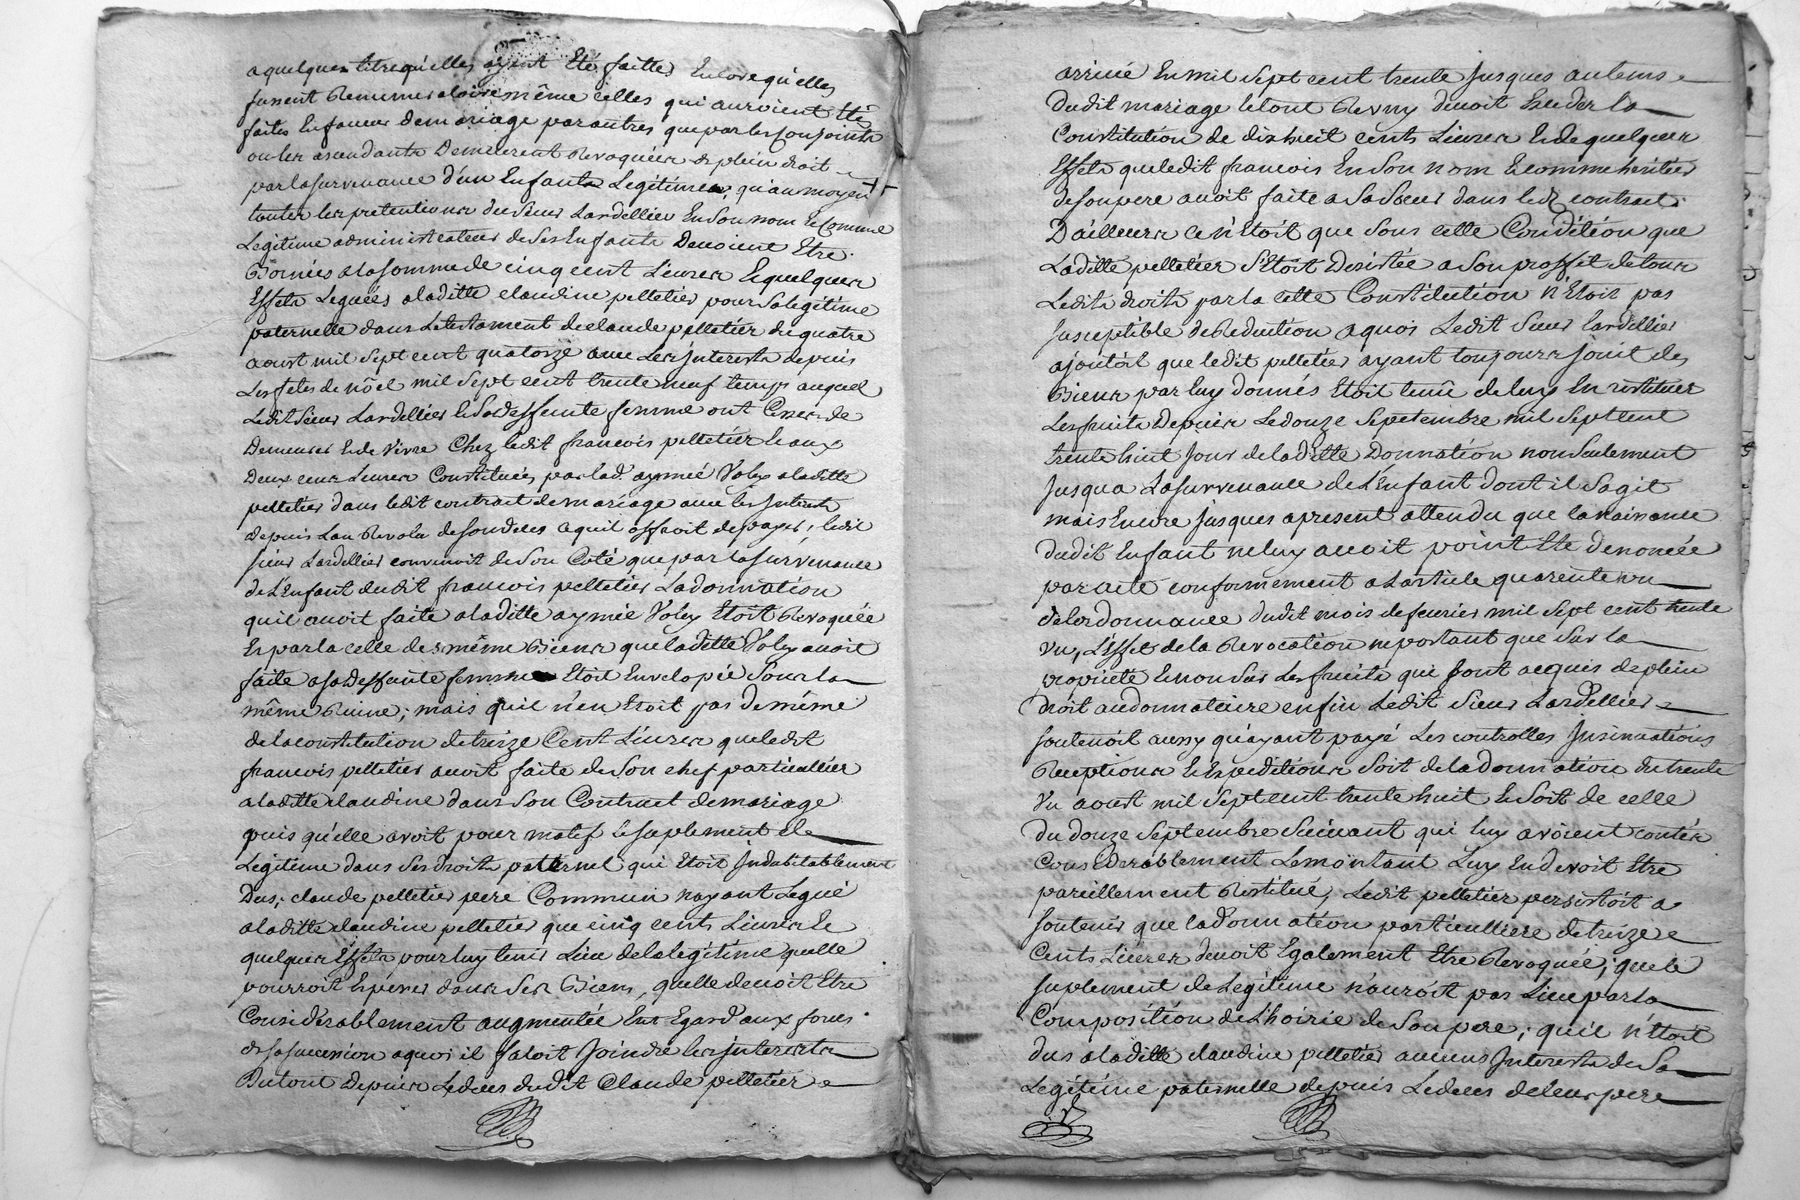 a quelques titre qu'elles ayent Eté faittes Encore qu'elles
fussent Remuneratoires même celles qui auroient Eté
faites En faveur de mariage par autres que par les Conjoints
ou les ascendants Demeurent Revoquées de plein droit
par la survenance d'un Enfants Legitimes, qu'au moyen
toutes les pretentions du Sieur Lardellier En Son nom Et Comme
Legitime administrateur de Ses Enfants Devoient Etre
Bornées a la somme de cinq cent Livres Et quelques
Effets Legués a laditte claudine pelletier pour Sa legitime
paternelle dans Le testament de claude pelletier du quatre
aoust mil Sept cent quatorze avec Les jnterests depuis
Les fetes de nôel mil Sept cent trente neuf temps auquel
Ledit Sieur Lardellier Et Sa deffunte femme ont Cessé de
Demeurer Et de Vivre Chez ledit francois pelletier Et aux
Deux cens Livres Constituées par lad. aymée Voley a laditte
pelletier dans ledit contract de mariage avec les jnterests
Depuis Lan Revolu de son deces a quil offroit de payer, ledit
sieur Lardellier convenoit de Son Coté que par la survenance
de L'Enfant dudit francois pelletier La donnation
qu'il avoit faite a laditte aymée Voley Etoit Revoquée
Et par la celle des même Biens que laditte Voley avoit
faite a sa deffunte femme Etoit Envelopée Sous la
même Ruine; mais qu'il n'en Etoit pas de même
de la constitution de treize Cent Livres que ledit
francois pelletier avoit faite de Son chef particullier
a laditte claudine dans Son Contract de mariage
puis qu'elle avoit pour motif le suplement de
Legitime dans Ses droits paternel qui Etoit Jndubitablement
Dus, claude pelletier pere Commun nayant Legué
a laditte claudine pelletier que cinq cents Livres Et
quelques Effets pour luy tenir Lieu de la legitime quelle
pourroit Esperer dans Ses Biens, quelle devoit Etre
Considerablement augmentée Eut Egard aux forces
de sa succession a quoi il faloit Joindre les jnterests
Du tout Depuis Le deces dudit Claude pelletier
arrivé En mil Sept cent trente Jusques au tems
Dudit mariage le tout Revny devoit Exceder la
Constitution de dixhuit cents Livres Et de quelques
Effets que ledit francois En Son nom Et comme héritier
de Son pere avoit faite a Sa Sœur dans led. contract.
D'ailleurs ce n'Etoit que Sous cette Condition que
Laditte pelletier S'Etoit Desistée a Son proffit de tous
Lesdits droits par la cette Constitution n'Etoit pas
susceptible de Reduction a quoi Ledit Sieur Lardellier
ajoutoit que ledit pelletier ayant toujours jouit des
Biens par luy donnés Etoit tenû de luy En restituer
Les fruits Depuis Le douze Septembre mil Sept cent
trente huit Jour de laditte Donnation non Seulement
Jusqua La survenance de L'Enfant dont il S'agit
mais Encore jusques apresent attendu que la naissance
dudit Enfant ne luy avoit point Eté denoncée
par acte conformement a L'article quarente un
de lordonnance dudit mois de fevrier mil Sept cent trente
vn, L'effet de la Revocation ne portant que Sur la
proprieté Et non Sur Les fruits qui Sont acquis de plein
Droit au donnataire enfin Ledit Sieur Lardellier
soutenoit aussy qu'ayant payé Les controlles Jnsinuations
Receptions Et Expeditions Soit de la donnation du trente
Vn aoust mil Sept cent trente huit Et Soit de celle
du douze Septembre Suivant qui luy avoient coutés
Considerablement Le montant Luy En devoit Etre
pareillement Restitué, Ledit pelletier persistoit a
soutenir que la donnation particulliere de treize
Cents Livres devoit Egalement Etre Revoquée; que le
suplement de Legitime n'auroit pas Lieu par la
Composition de L'hoirie de Son pere; qu'il n'Etoit
dus a laditte claudine pelletier aucuns Jnterests de Sa
Legitime paternelle depuis Le deces de leur pere